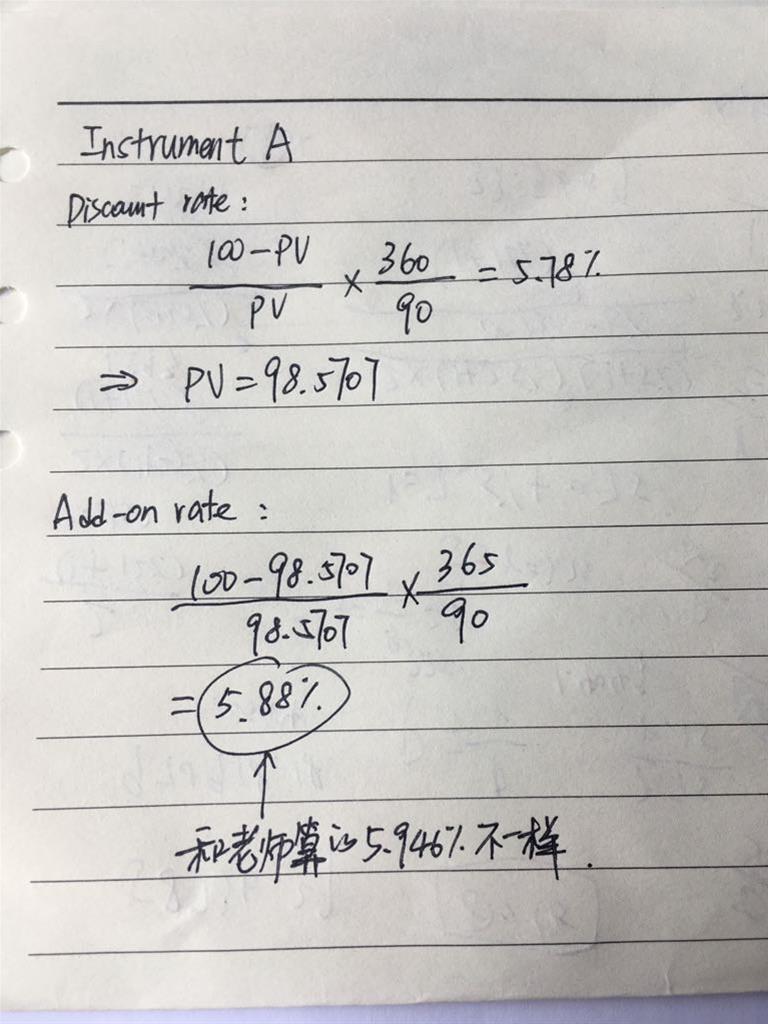 Instrument A
Discount rate :
100-PV / PV × 360 / 90 = 5.78%
⇒ PV = 98.5707
Add-on rate :
100-98.5707 / 98.5707 × 365 / 90
= 5.88%
↑
和老师算的5.946%不一样.